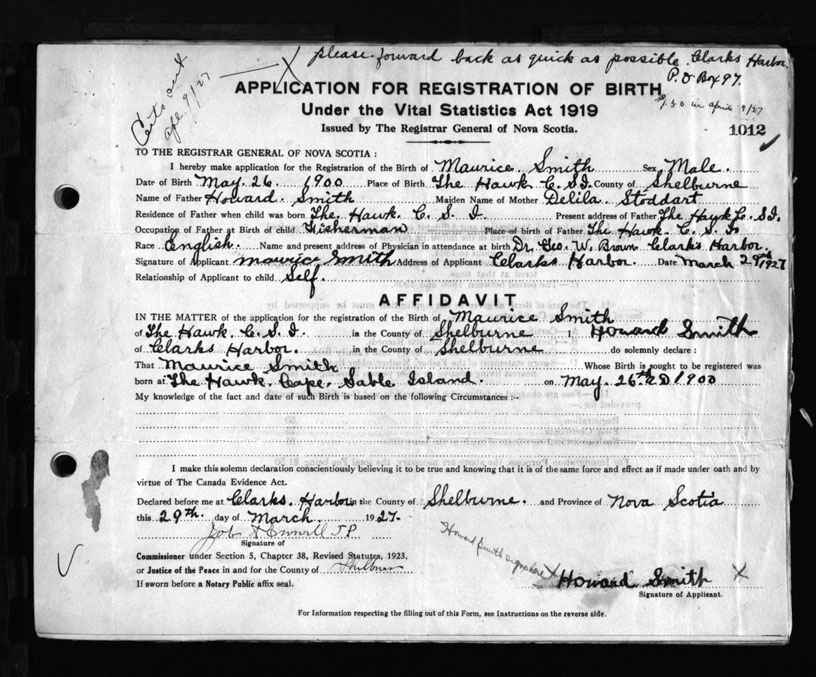 please forward back as quick as possible. Clarks Harbor.
P. O Box 97.
Certs out
apr. 9/27
APPLICATION FOR REGISTRATION OF BIRTH
$1.50 in april 9/27
Under the Vital Statistics Act 1919
Issued by The Registrar General of Nova Scotia.
1012
TO THE REGISTRAR GENERAL OF NOVA SCOTIA :
I hereby make application for the Registration of the Birth of Maurice Smith Sex Male.
Date of Birth May. 26. 1900 Place of Birth The Hawk C. S I. County of Shelburne
Name of Father Howard Smith Maiden Name of Mother Delila Stoddart
Residence of Father when child was born The. Hawk C. S. I Present address of Father The Hawk C. S I.
Occupation of Father at Birth of child Fisherman Place of birth of Father The Hawk C. S. I.
Race English. Name and present address of Physician in attendance at birth Dr. Geo. W. Brown Clarks Harbor.
Signature of Applicant Maurice Smith Address of Applicant Clarks Harbor. Date March 29th 1927
Relationship of Applicant to child Self.
AFFIDAVIT
IN THE MATTER of the application for the registration of the Birth of Maurice Smith
of The Hawk C. S. I. in the County of Shelburne I, Howard Smith
of Clarks Harbor. in the County of Shelburne do solemnly declare :
That Maurice Smith Whose Birth is sought to be registered was
born at The Hawk. Cape. Sable Island. on May. 26th. A D 1900
My knowledge of the fact and date of such Birth is based on the following Circumstances :-
I make this solemn declaration conscientiously believing it to be true and knowing that it is of the same force and effect as if made under oath and by
virtue of The Canada Evidence Act.
Declared before me at Clarks. Harbor in the County of Shelburne. and Province of Nova Scotia
this 29th. day of March. 1927.
Signature of
Commissioner under Section 5, Chapter 38, Revised Statutes, 1923,
or Justice of the Peace in and for the County of Shelburne
If sworn before a Notary Public affix seal.
Howard Smith sign here X Howard Smith X
Signature of Applicant.
For Information respecting the filling out of this Form, see Instructions on the reverse side.